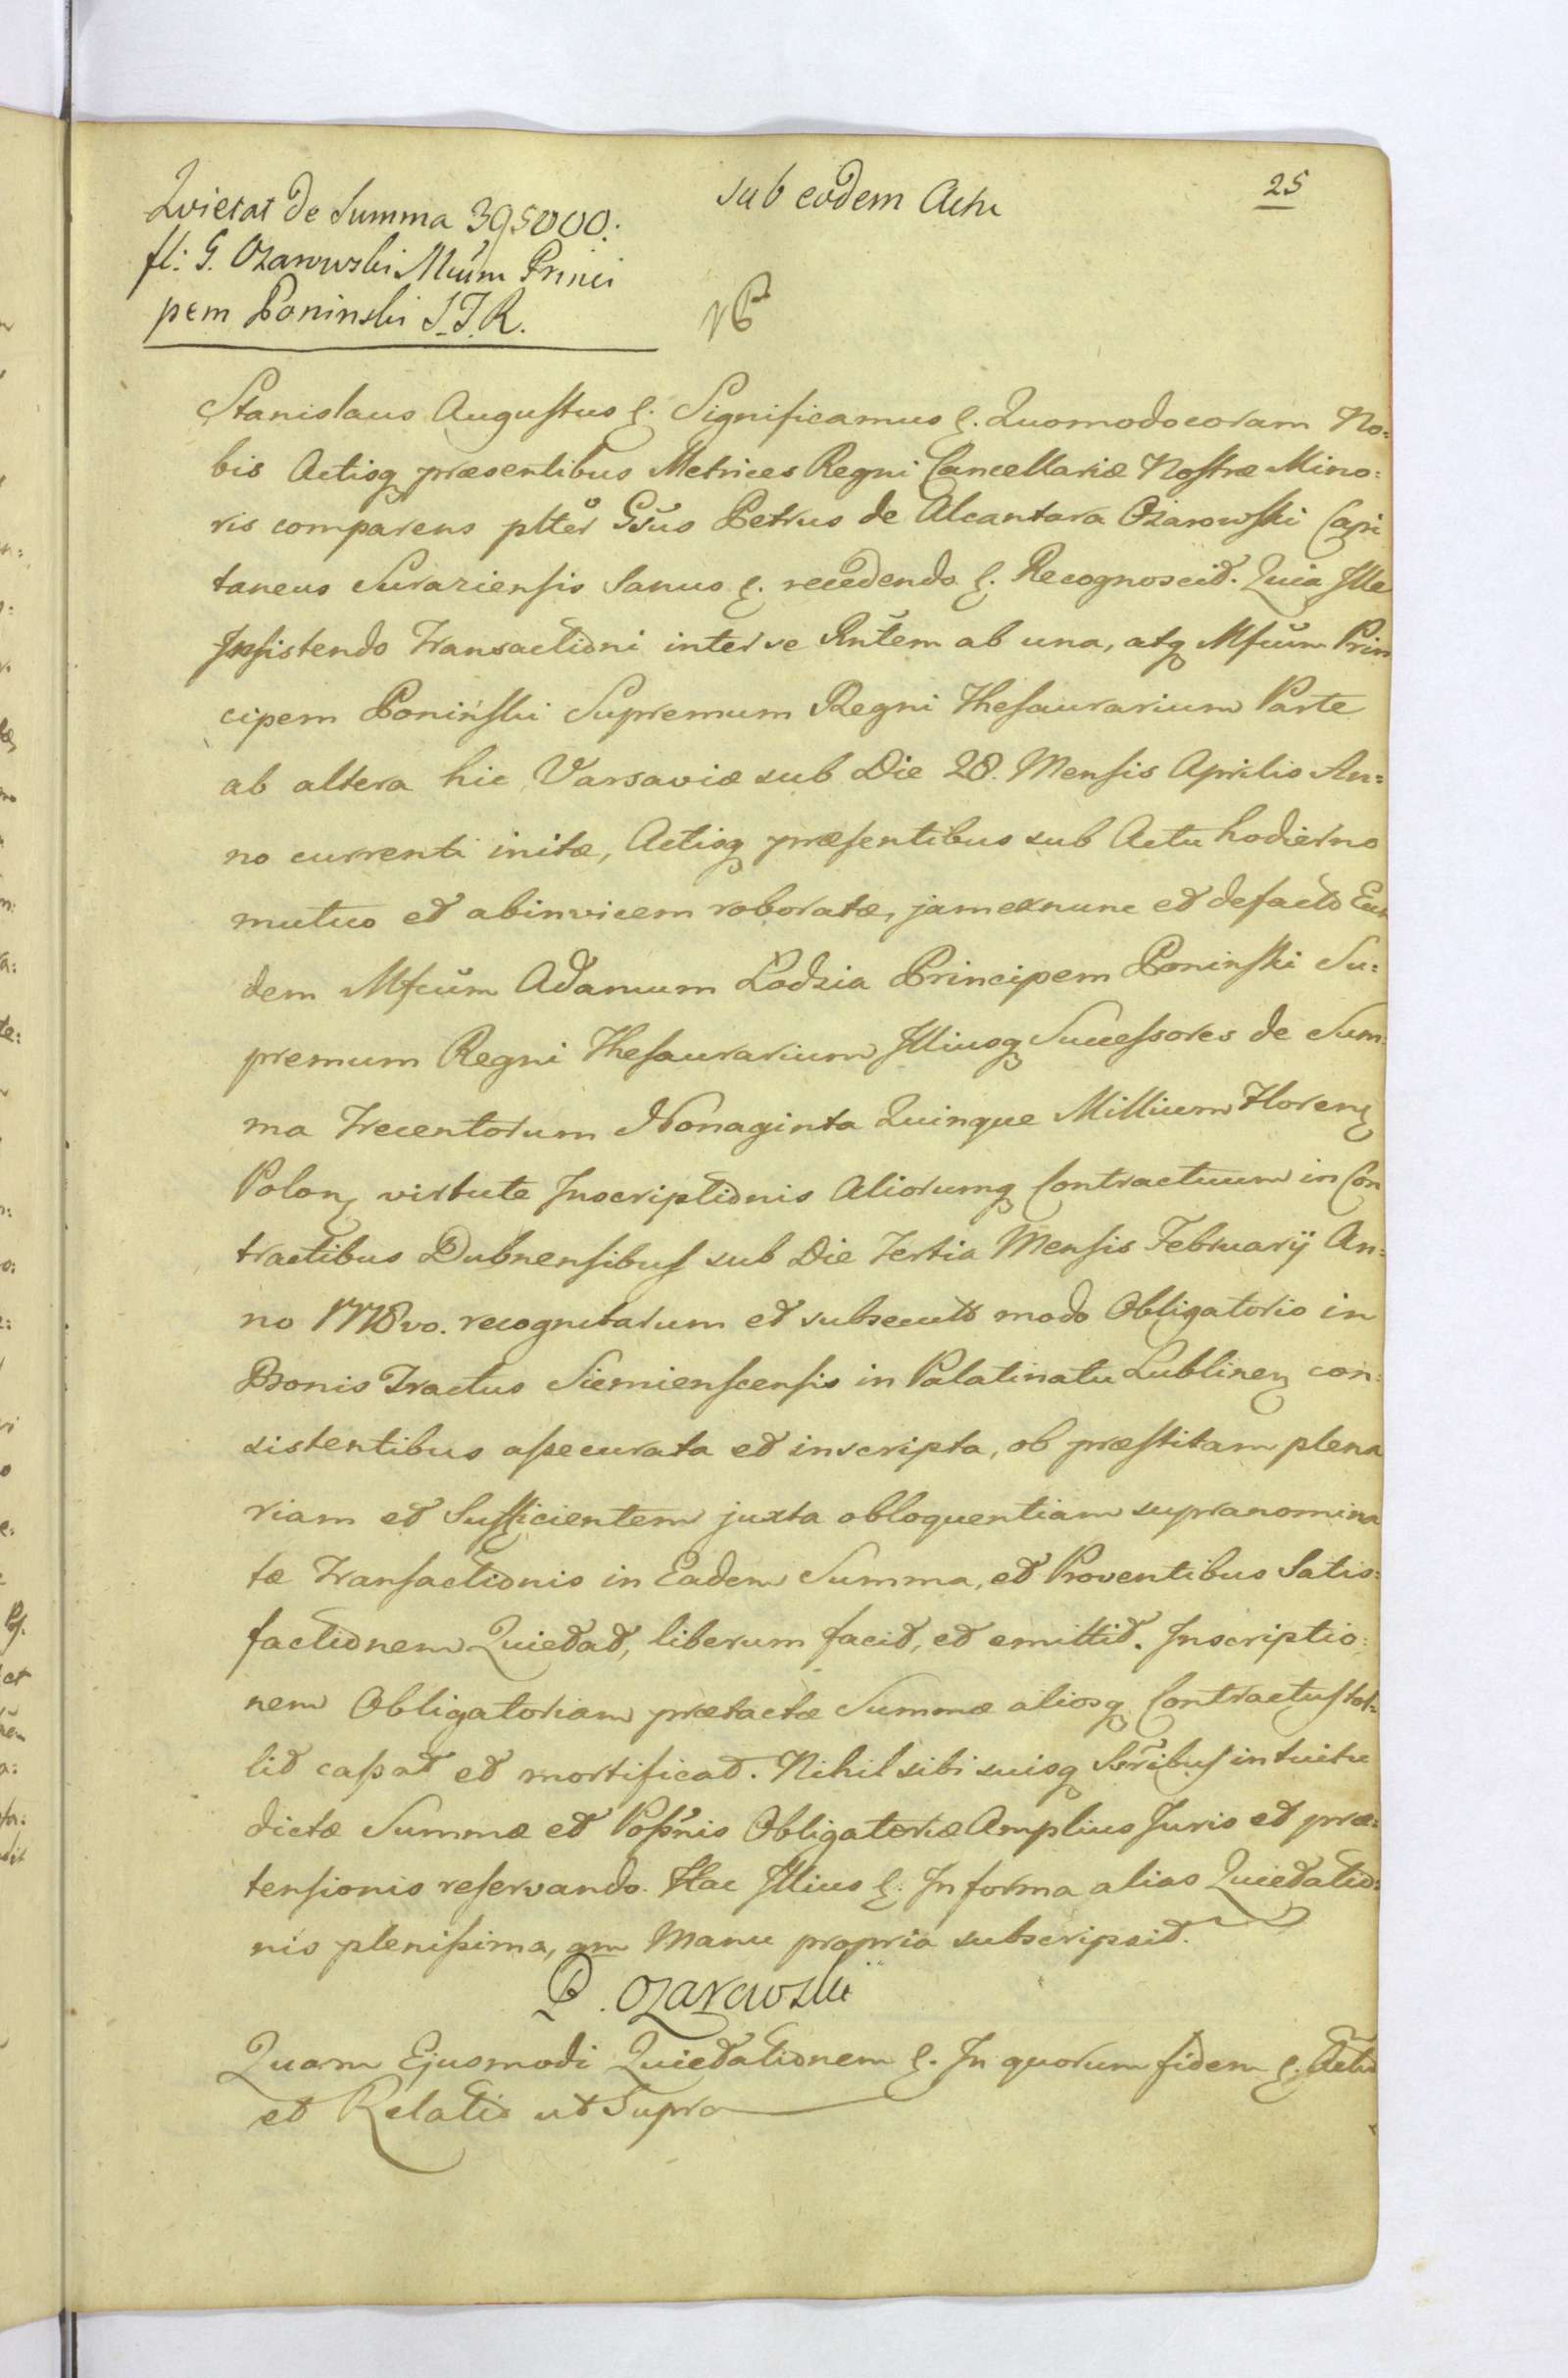 25
sub eodem Actu
Quietat de Summa 395000:
fl: G. Ozarowski Mcum Princi
pem Poninski S.T.R.
Stanislaus Augustus &. Significamus &. Quomodo coram No:
bis Actisq̃ præsentibus Metrices Regni Cancellariæ Nostræ Mino:
ris comparens plter Gsus Petrus de Alcantara Ożarowski Capi
taneus Suraziensis Sanus &. recedendo &. Recognoscit. Quia Ille
Insistendo Transactioni inter se Rntem ab una, atq̃ Mfcum Prin
cipem Poniński Supremum Regni Thesaurarium Parte
ab altera hic Varsaviæ sub Die 28. Mensis Aprilis An:
no currenti initæ, Actisq̃ præsentibus sub Actu hodierno
mutuo et abinvicem roboratæ, jam ex nunc et de facto Eun
dem Mfcum Adamum Lodzia Principem Poninski Su:
premum Regni Thesaurarium Illiusq̃ Successores de Sum:
ma Trecentorum Nonaginta Quinque Millium Floren̨
Polon̨ virtute Inscriptionis Aliorumq̃ Contractuum in Con
tractibus Dubnensibus sub Die Tertia Mensis Februarÿ An:
no 1778vo. recognitarum et subsecuto modo Obligatorio in
Bonis Tractus Siemienscensis in Palatinatu Lublinen̨ con:
sistentibus assecurata et inscripta, ob præstitam plena
riam et Sufficientem juxta obloquentiam supranomina
tæ Transactionis in Eadem Summa, et Proventibus Satis:
factionem Quietat, liberum facit, et emittit. Inscriptio:
nem Obligatoriam prætactæ Summæ aliosq̃ Contractus tol:
lit cassat et mortificat. Nihil sibi suisq̃ Ssribus intuitu
dictæ Summæ et Possnis Obligatoriæ Amplius Juris et præ:
tensionis reservando. Hac Illius &. In forma alias Quietatio:
nis plenissima, qm Manu propria subscripsit.
P. Ozarowski
Quam Ejusmodi Quietationem &. In quorum fidem &. Actu
et Relatio ut Supra